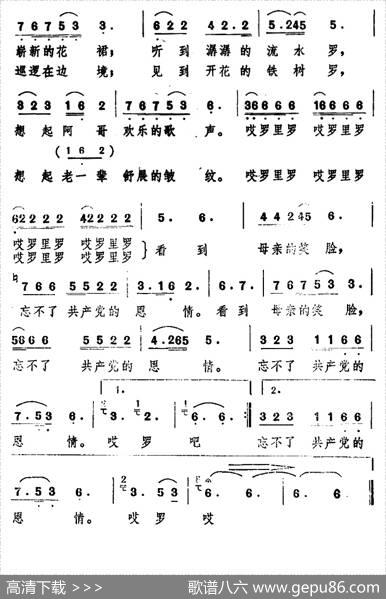 7 6 7 5 3 3. 6 2 2 4 2. 2 5. 2 4 5 5.
崭新的花 裙； 听到 潺潺的 流水 罗，
巡逻在边 境； 见到 开花的 铁树 罗，
3 2 3 1 6 2 7 6 7 5 3 6. 36 6 6 6 16 6 6 6
想起阿哥 欢乐的歌 声。 哎罗里罗 哎罗里罗
(1 6 2)
想起老一辈 舒展的皱 纹。 哎罗里罗 哎罗里罗
62 2 2 2 42 2 2 2 5. 6. 4 4 2 4 5 6.
哎罗里罗 哎罗里罗 看 到 母亲的笑 脸，
哎罗里罗 哎罗里罗
7 6 6 5 5 2 2 3. 1 6 2. 6. 7. 7 6 7 5 3 3.
忘不了 共产党的 恩 情。看到 母亲的笑 脸，
56 6 6 5 5 2 2 4. 2 6 5 5. 3 2 3 1 1 6 6
忘不了 共产党的 恩 情。 忘不了 共产党的
1. 2.
7. 5 3 6. 3. 2. 6. 6. 3 2 3 1 1 6 6
恩 情。哎 罗 吧 忘不了 共产党的
7. 5 3 6. 3. 5 3 6. 6. 6. 6.
恩 情。 哎 罗 哎
高清下载 >>> 歌谱八六 www.gepu86.com